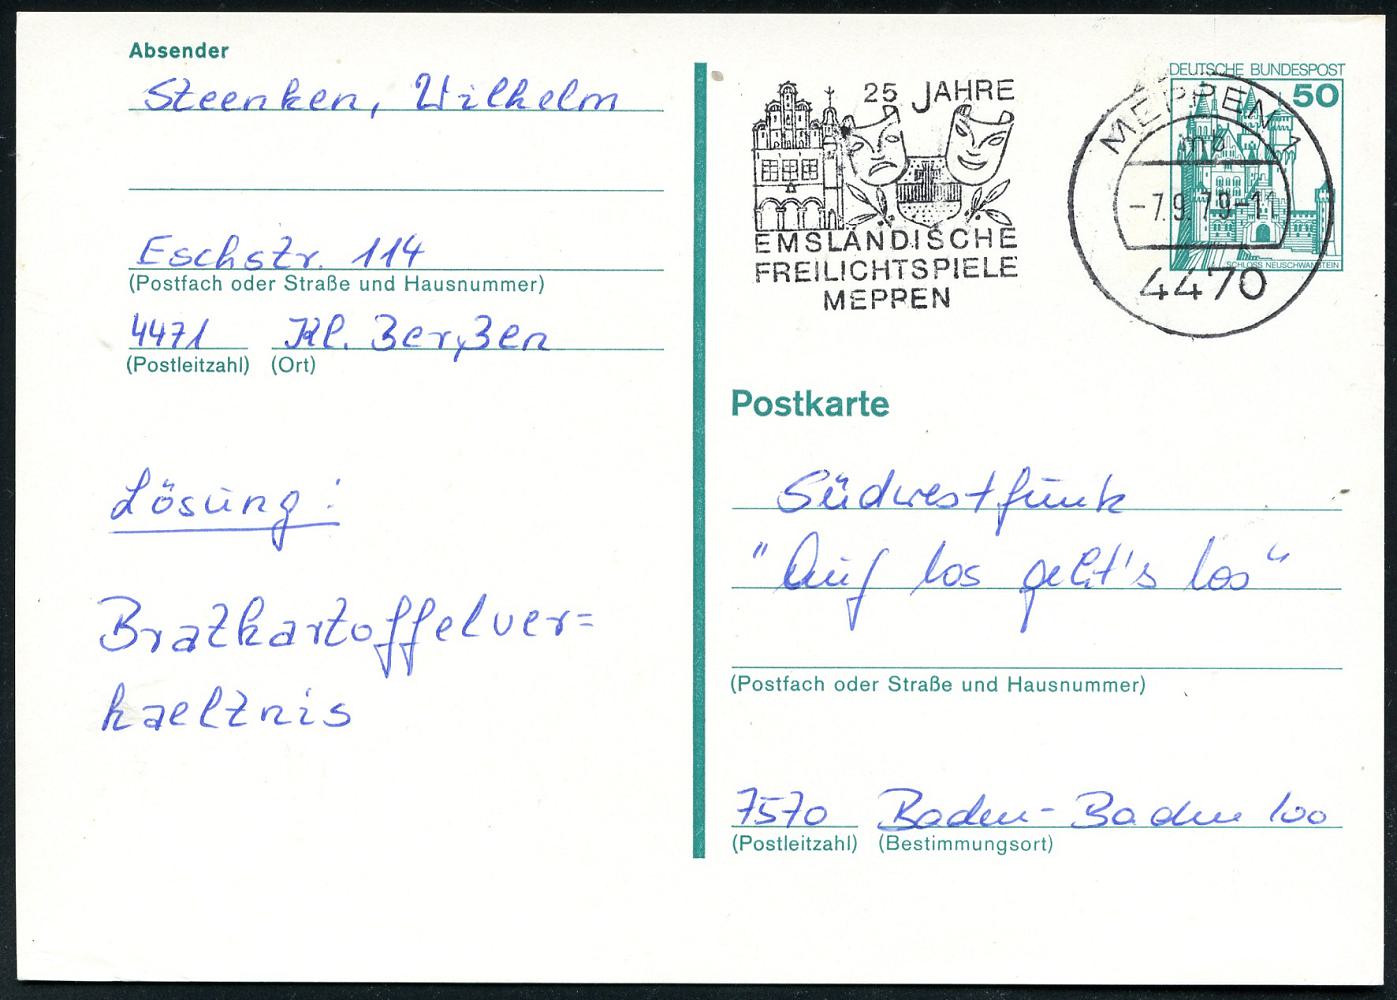 Absender
Steenken, Wilhelm
Eschstr. 114
(Postfach oder Straße und Hausnummer)
4471 Kl. Berßen
(Postleitzahl) (Ort)
Lösung:
Bratkartoffelver=
haeltnis
25 JAHRE
EMSLÄNDISCHE
FREILICHTSPIELE
MEPPEN
DEUTSCHE BUNDESPOST
50
SCHLOSS NEUSCHWANSTEIN
MEPPEN 1
mb
-7.9.79-11
4470
Postkarte
Südwestfunk
"Auf los geht's los"
(Postfach oder Straße und Hausnummer)
7570 Baden-Baden 100
(Postleitzahl) (Bestimmungsort)